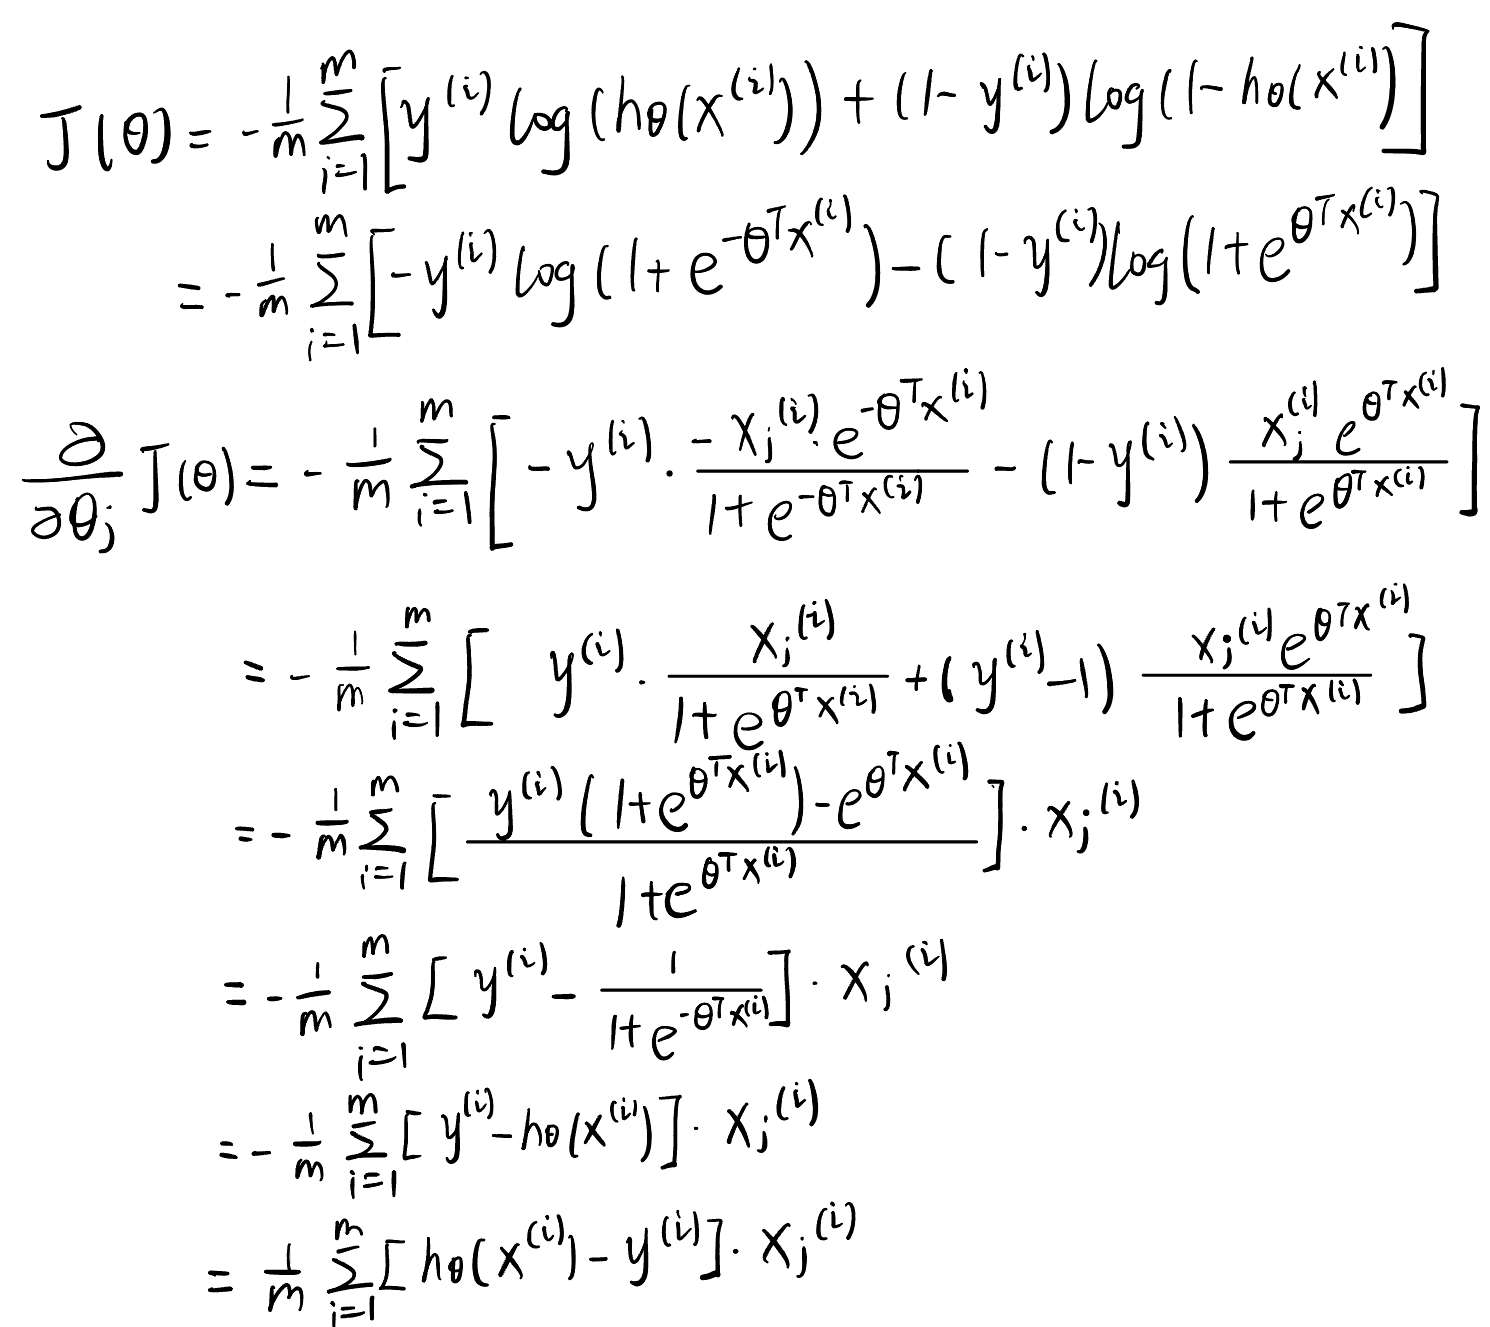 J(θ) = -\frac{1}{m} \sum_{i=1}^{m} [y^{(i)} log(h_θ(x^{(i)})) + (1-y^{(i)}) log(1-h_θ(x^{(i)})]
= -\frac{1}{m} \sum_{i=1}^{m} [-y^{(i)} log(1+e^{-θ^T x^{(i)}}) - (1-y^{(i)}) log(1+e^{θ^T x^{(i)}})]
\frac{∂}{∂θ_j} J(θ) = -\frac{1}{m} \sum_{i=1}^{m} [-y^{(i)} · \frac{-x_j^{(i)} · e^{-θ^T x^{(i)}}}{1+e^{-θ^T x^{(i)}}} - (1-y^{(i)}) \frac{x_j^{(i)} e^{θ^T x^{(i)}}}{1+e^{θ^T x^{(i)}}}]
= -\frac{1}{m} \sum_{i=1}^{m} [y^{(i)} · \frac{x_j^{(i)}}{1+e^{θ^T x^{(i)}}} + (y^{(i)}-1) \frac{x_j^{(i)} e^{θ^T x^{(i)}}}{1+e^{θ^T x^{(i)}}}]
= -\frac{1}{m} \sum_{i=1}^{m} [\frac{y^{(i)}(1+e^{θ^T x^{(i)}}) - e^{θ^T x^{(i)}}}{1+e^{θ^T x^{(i)}}}] · x_j^{(i)}
= -\frac{1}{m} \sum_{i=1}^{m} [y^{(i)} - \frac{1}{1+e^{-θ^T x^{(i)}}}] · x_j^{(i)}
= -\frac{1}{m} \sum_{i=1}^{m} [y^{(i)} - h_θ(x^{(i)})] · x_j^{(i)}
= \frac{1}{m} \sum_{i=1}^{m} [h_θ(x^{(i)}) - y^{(i)}] · x_j^{(i)}